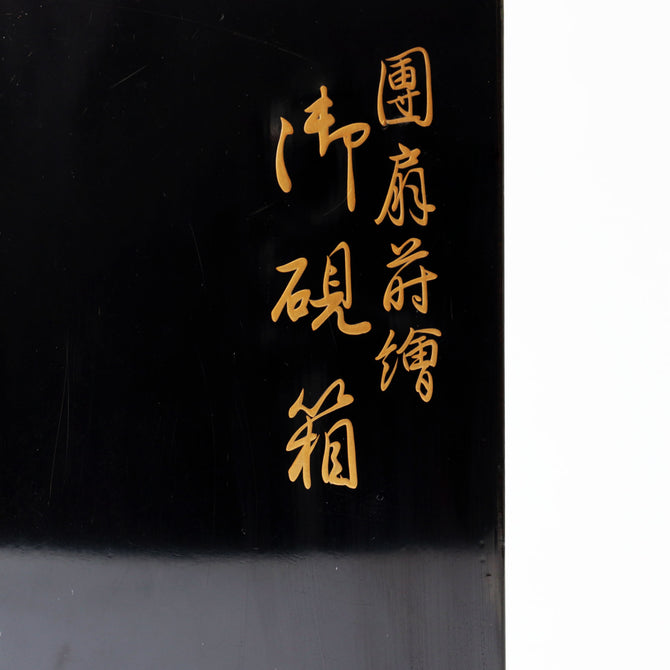 團扇蒔繪
御硯箱